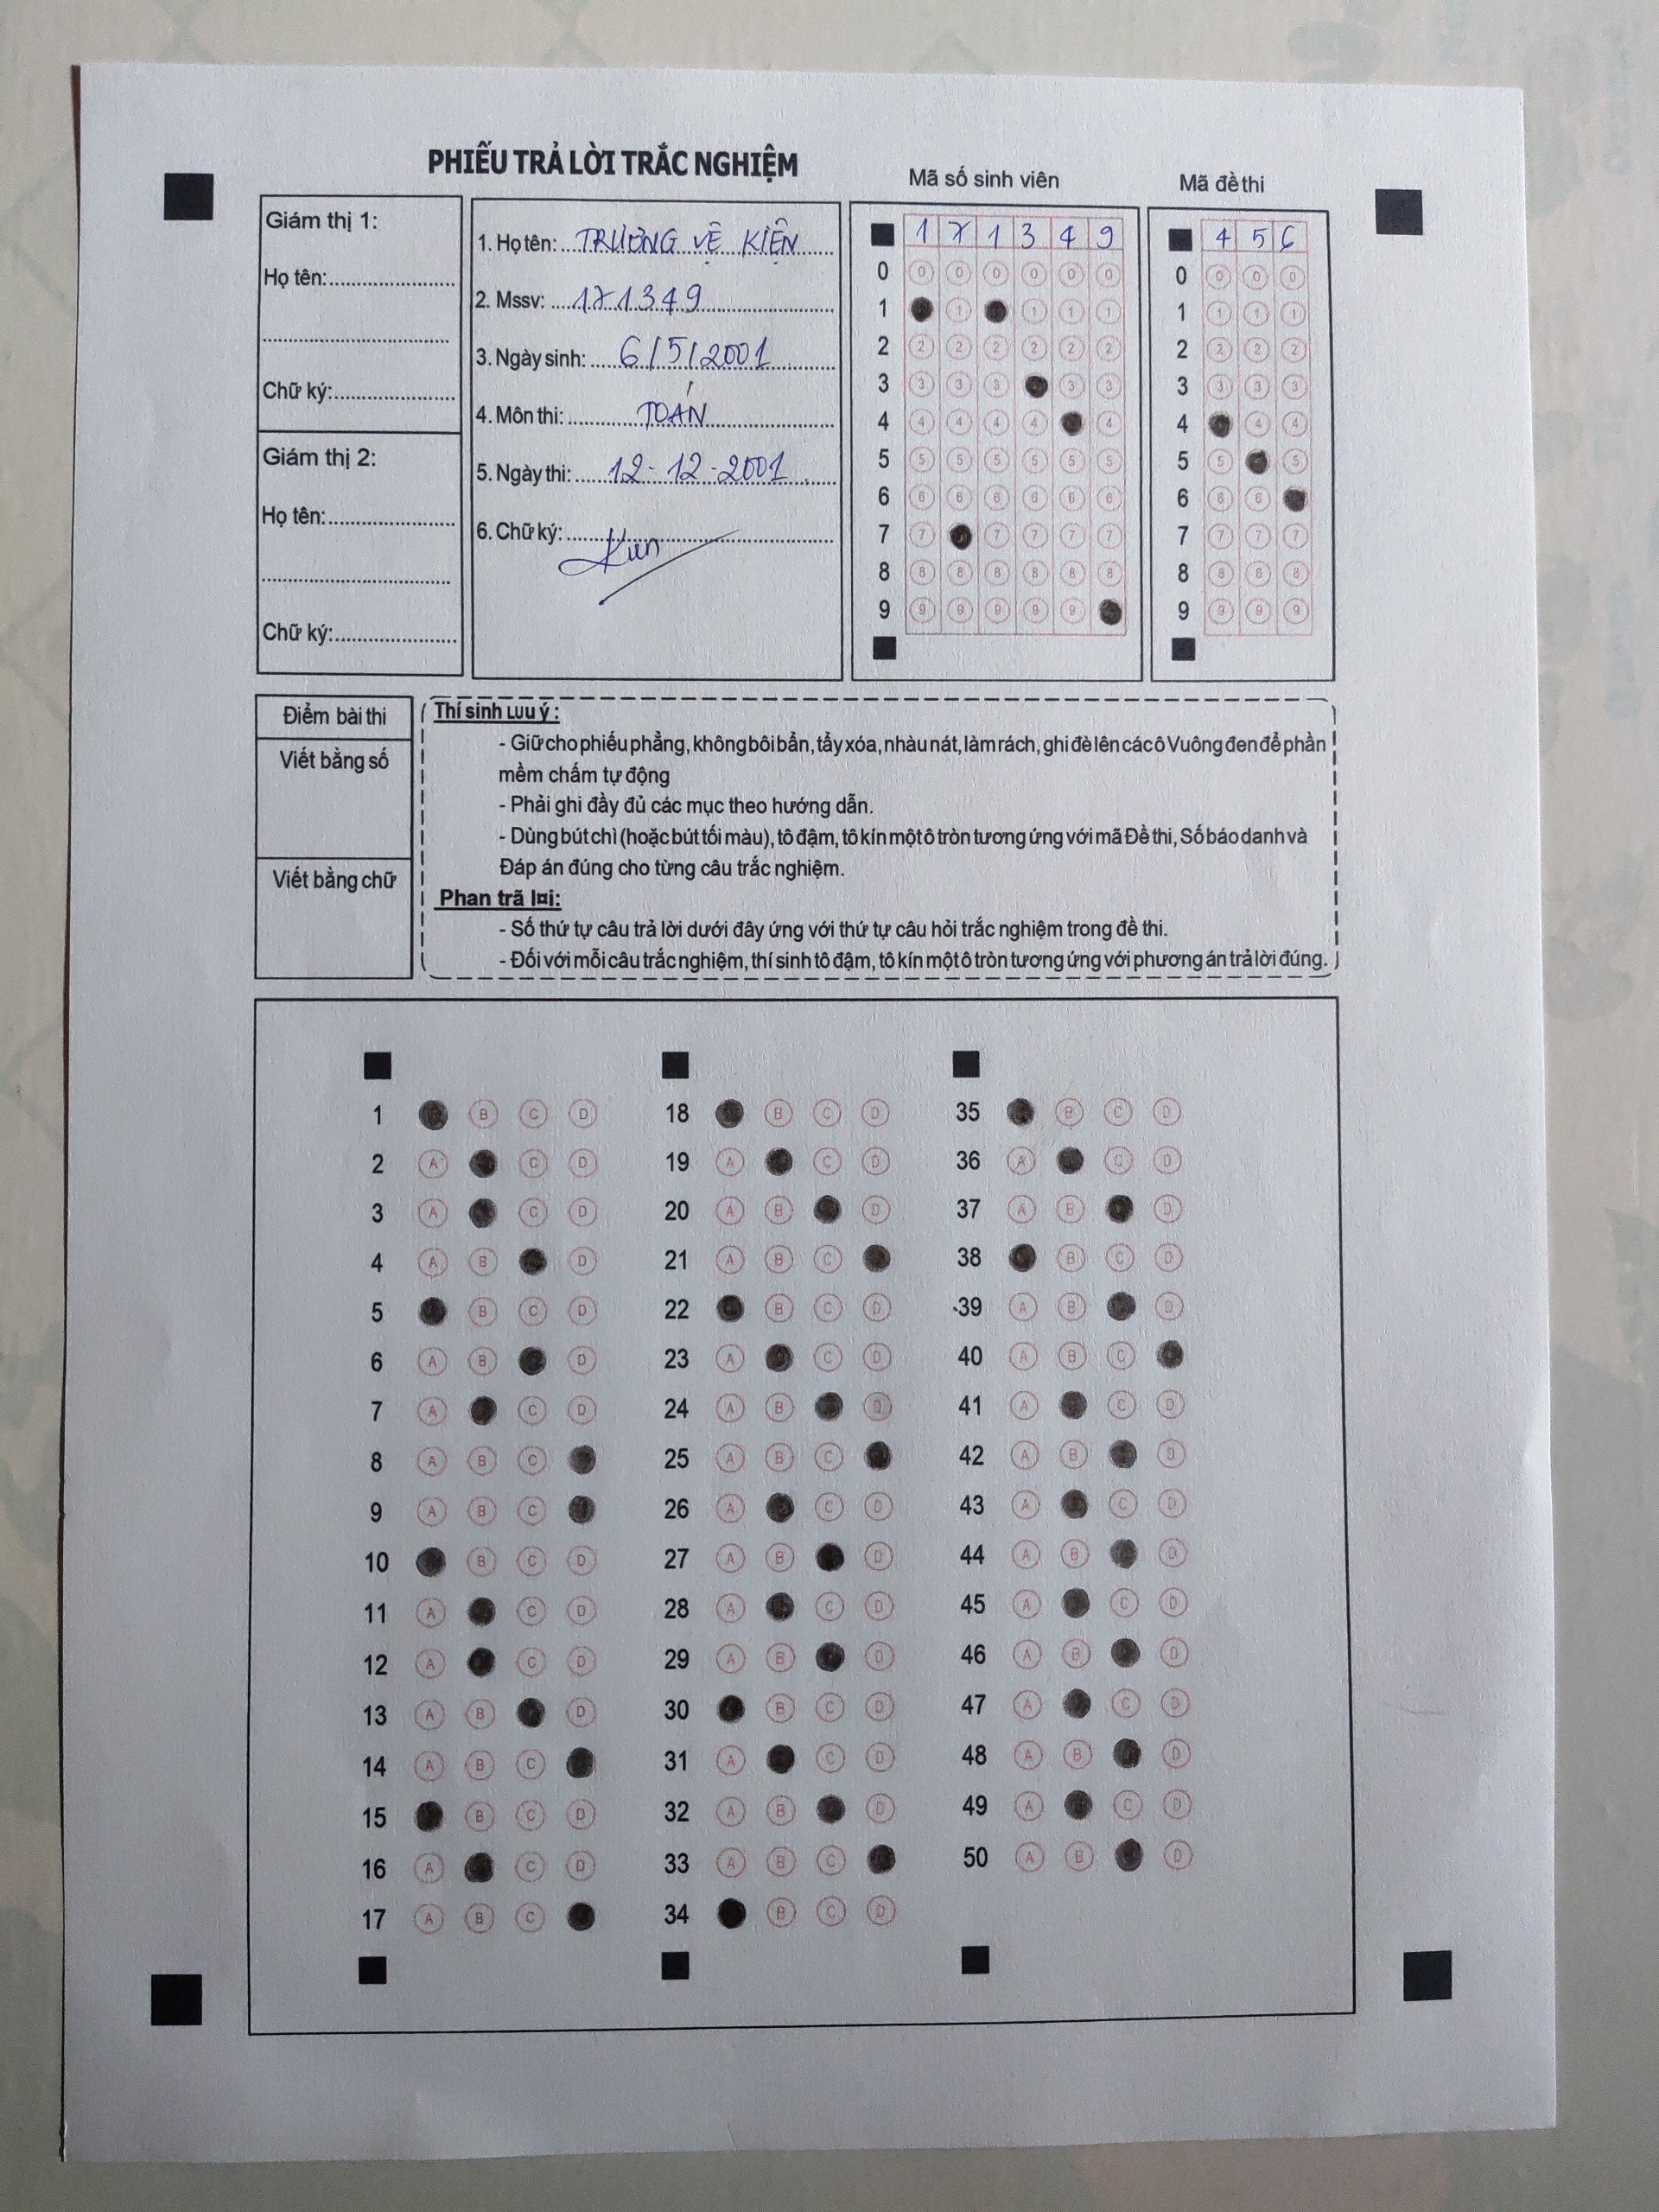 PHIẾU TRẢ LỜI TRẮC NGHIỆM
Giám thị 1:
Họ tên:
Chữ ký:
Giám thị 2:
Họ tên:
Chữ ký:
1. Họ tên: TRƯƠNG VỆ KIỆN
2. Mssv: 171349
3. Ngày sinh: 6/5/2001
4. Môn thi: TOÁN
5. Ngày thi: 12-12-2001
6. Chữ ký:
Mã số sinh viên
1 7 1 3 4 9
0 0 0 0 0 0 0
1 1 1 1 1
2 2 2 2 2 2 2
3 3 3 3 3 3
4 4 4 4 4 4
5 5 5 5 5 5 5
6 6 6 6 6 6 6
7 7 7 7 7 7
8 8 8 8 8 8 8
9 9 9 9 9 9
Mã đề thi
4 5 6
0 0 0 0
1 1 1 1
2 2 2 2
3 3 3 3
4 4 4
5 5 5
6 6 6
7 7 7 7
8 8 8 8
9 9 9 9
Điểm bài thi
Viết bằng số
Viết bằng chữ
Thí sinh LUU ý :
- Giữ cho phiếu phẳng, không bôi bẩn, tẩy xóa, nhàu nát, làm rách, ghi đè lên các ô Vuông đen để phần
mềm chấm tự động
- Phải ghi đầy đủ các mục theo hướng dẫn.
- Dùng bút chì (hoặc bút tối màu), tô đậm, tô kín một ô tròn tương ứng với mã Đề thi, Số báo danh và
Đáp án đúng cho từng câu trắc nghiệm.
Phan trã l¤i:
- Số thứ tự câu trả lời dưới đây ứng với thứ tự câu hỏi trắc nghiệm trong đề thi.
- Đối với mỗi câu trắc nghiệm, thí sinh tô đậm, tô kín một ô tròn tương ứng với phương án trả lời đúng.
1 B C D
2 A C D
3 A C D
4 A B D
5 B C D
6 A B D
7 A C D
8 A B C
9 A B C
10 B C D
11 A C D
12 A C D
13 A B D
14 A B C
15 B C D
16 A C D
17 A B C
18 B C D
19 A C D
20 A B D
21 A B C
22 B C D
23 A C D
24 A B D
25 A B C
26 A C D
27 A B D
28 A C D
29 A B D
30 B C D
31 A C D
32 A B D
33 A B C
34 B C D
35 B C D
36 A C D
37 A B D
38 B C D
39 A B D
40 A B C
41 A C D
42 A B D
43 A C D
44 A B D
45 A C D
46 A B D
47 A C D
48 A B D
49 A C D
50 A B D